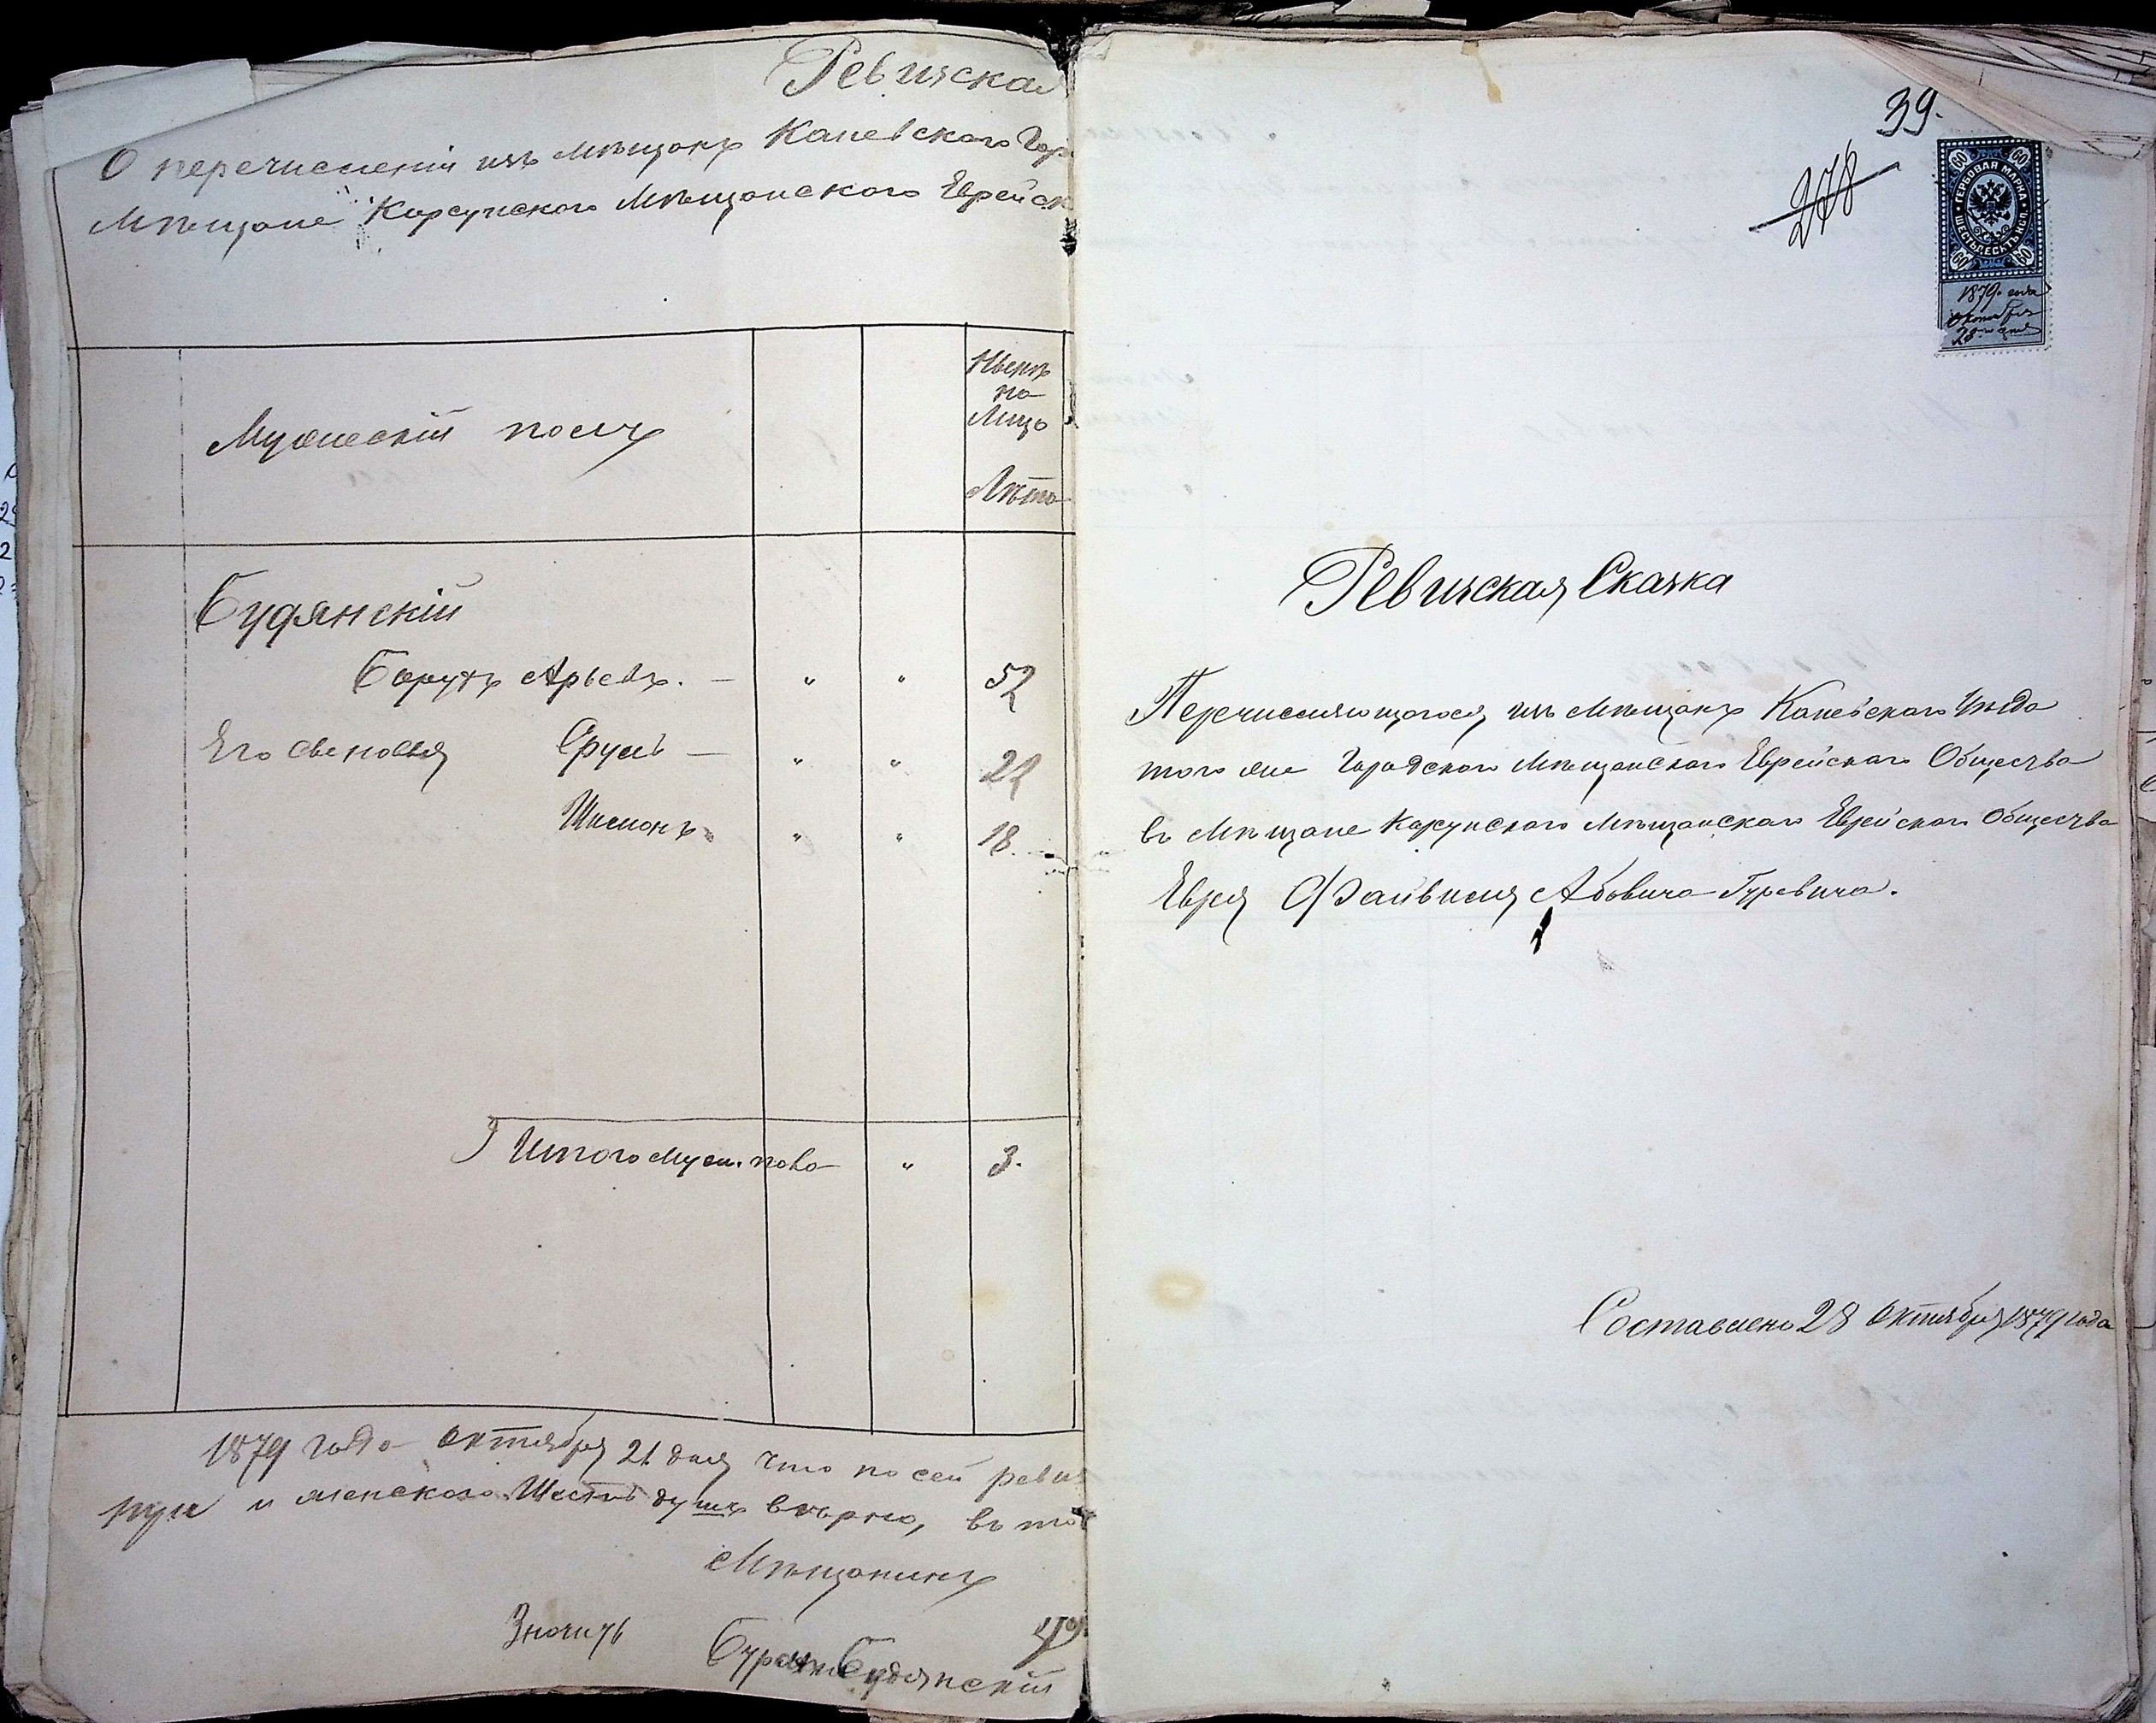 Ревизская
О перечисленіи изъ мѣщанъ Каневского Гор
Мѣщане Корсунского Мѣщанского Еврейск
Мужескій полъ
Ныенѣ
на
Лицо
Лѣта
Будянскій
Борухъ Арьевъ. — " " 52
Его сыновья Сруль — " " 22
Шимонъ " " 18.
Итого муж. пола " 3.
1879 года Октября 21 дня что по сей реви
три и женского Шесть душъ вѣрно, въ том
Мѣщанинъ
Борухъ Будянскій
39.
278
60 60
ГЕРБОВАЯ МАРКА
ШЕСТЬДЕСЯТЪ КОП.
60 60
1879 года
Октября
28 дня
Ревизская Сказка
Перечисляющагося изъ Мѣщанъ Каневскаго Уѣзда
того же Городского Мѣщанскаго Еврейскаго Общества
въ Мѣщане Корсунского Мѣщанскаго Еврейского Общества
Еврея Файвиша Абовича Гуревича.
Составлена 28 Октября 1879 года